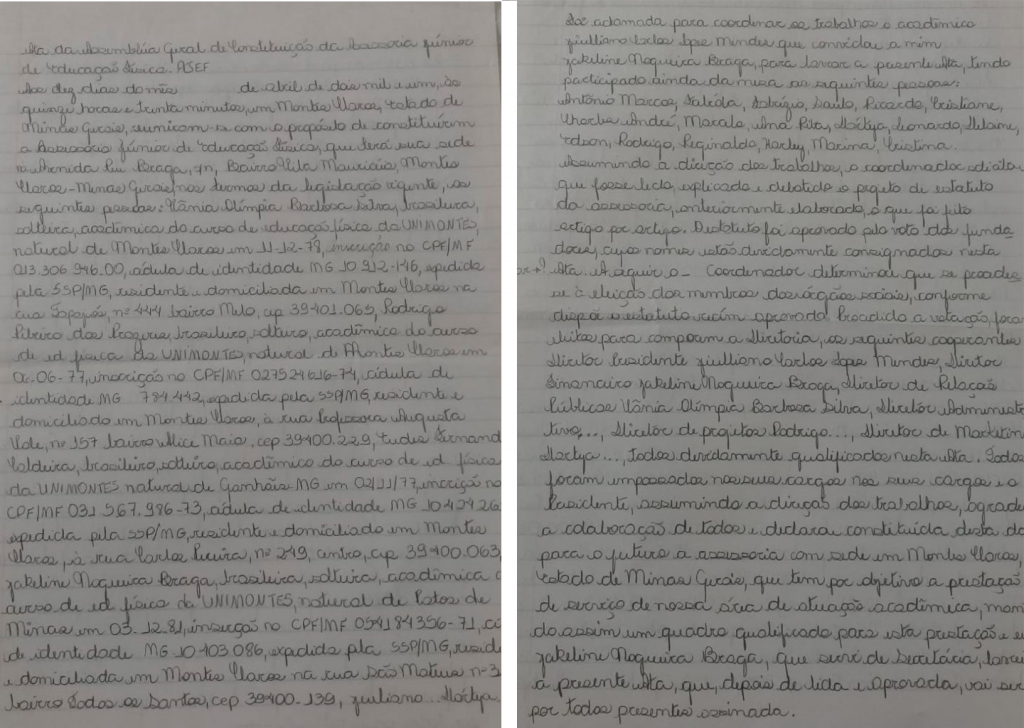 Ata da Assembléia Geral de Constituição da Assessoria júnior
de Educação Física. ASEF
Aos dez dias do mês de abril de dois mil e um, às
quinze horas e trinta minutos, em Montes Claros, Estado de
Minas Gerais, reuniram-se com o propósito de constituírem
a Assessoria júnior de Educação Física, que terá sua sede
Avenida Rui Braga, sn, Bairro Vila Mauricéia, Montes
Claros - Minas Gerais, nos termos da legislação vigente, as
seguintes pessoas: Vânia Olímpia Barbosa Silva, brasileira,
solteira, acadêmica do curso de educação física da UNIMONTES,
natural de Montes Claros em 11-12-78, inscrição no CPF/MF
013 306 946.00, cédula de identidade MG 10 912-146, expedida
pela SSP/MG, residente e domiciliada em Montes Claros na
rua Tapajós, nº 444 bairro Melo, cep 39-401.065, Rodrigo
Ribeiro dos Prazeres, brasileiro, solteiro, acadêmico do curso
de ed física da UNIMONTES, natural de Montes Claros em
06-77, inscrição no CPF/MF 027524616-74, cédula de
identidade MG 784.442, expedida pela SSP/MG, residente e
domiciliado em Montes Claros, à rua Professora Augusta
Vale, nº 157 bairro Alice Maia, cep 39400.229, Fernand
Caldeira, brasileiro, solteiro, acadêmico do curso de ed física
da UNIMONTES natural de Ganhães MG em 02/11/77, inscrição no
CPF/MF 031 567.986-73, cédula de identidade MG 10.412426
expedida pela SSP/MG, residente e domiciliado em Montes
Claros, à rua Carlos Pereira, nº 249, centro, cep 39400.063,
Jakeline Nogueira Braga, brasileira, solteira, acadêmica
curso de ed física da UNIMONTES, natural de Patos de
Minas em 03.12.81, inscrição no CPF/MF 054184356-71, cé
de identidade MG 10403086, expedida pela SSP/MG, resid
e domiciliada em Montes Claros na rua São Mateus nº 3
bairro Todos os Santos, cep 39400.139, Juliano...
aclamada para coordenar os trabalhos o acadêmico
Juilliano Carlos Lopes Mendes que convidou a mim
Jakeline Nogueira Braga, para lavrar a presente Ata, tendo
participado ainda da mesa as seguintes pessoas:
Antônio Marcos, Fabrízio, Saulo, Ricardo, Cristiane,
André, Marcelo, Ana Rita, Leonardo,
Edson, Rodrigo, Reginaldo, Harley, Marina, Cristina.
Assumindo a direção dos trabalhos, o coordenador solicitou
que fosse lido, explicado e debatido o projeto de estatuto
da assessoria, anteriormente elaborado, o que foi feito
artigo por artigo. O estatuto foi aprovado pelo voto dos funda
dores, cujos nomes estão devidamente consignados nesta
Ata. A seguir o - Coordenador determinou que se procedes
se à eleição dos membros dos órgãos sociais, conforme
dispõe o estatuto recém aprovado. Procedida a votação, foram
eleitos para comporem a Diretoria, os seguintes cooperantes
Diretor Presidente Juilliano Carlos Lopes Mendes, Diretor
Financeiro Jakeline Nogueira Braga, Diretor de Relações
Públicas Vânia Olímpia Barbosa Silva, Diretor Administra
tivo..., Diretor de projetos Rodrigo..., Diretor de Marketin
..., Todos devidamente qualificados nesta Ata. Todos
foram empossados nos seus cargos nos seus cargos e o
Presidente, assumindo a direção dos trabalhos, agradeceu
a colaboração de todos e declarou constituída desta da
para o futuro a assessoria com sede em Montes Claros,
Estado de Minas Gerais, que tem por objetivo a prestação
de serviço de nossa área de atuação acadêmica, mon
do assim um quadro qualificado para esta prestação e eu
Jakeline Nogueira Braga, que servi de Secretária, lavrei
a presente Ata, que, depois de lida e aprovada, vai ser
por todos presentes assinada.